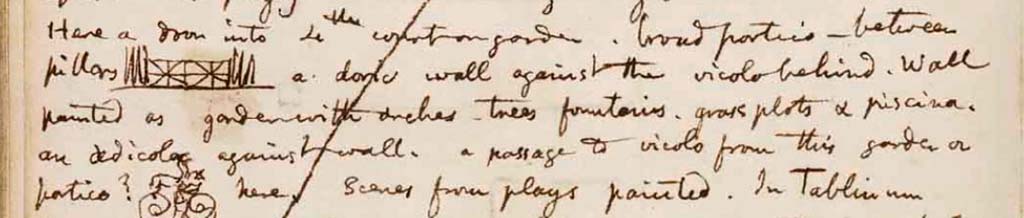 Here a door into 4th court or garden. broad portico – between
pillars a doric wall against the vicolo behind. Wall
painted as garden with arches trees fountains. grass plots & piscina.
an ædicola against wall. a passage to vicolo from this garden or
portico? here. Scenes from plays painted. In Tablinum